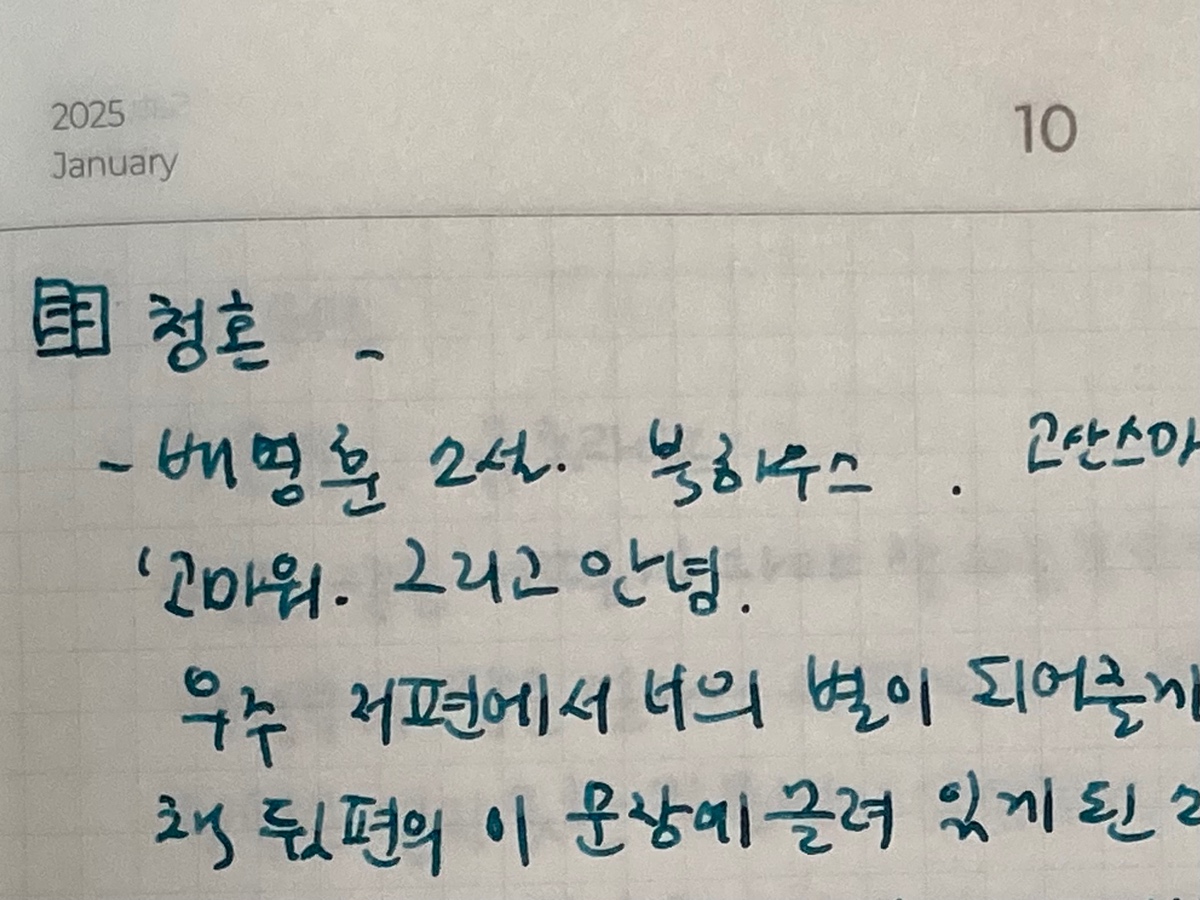 2025
January
10
청혼 -
- 배명훈 소설. 북하우스 .
'고마워. 그리고 안녕.
우주 저편에서 너의 별이 되어줄게
책 뒷편의 이 문장에 끌려 읽게 된